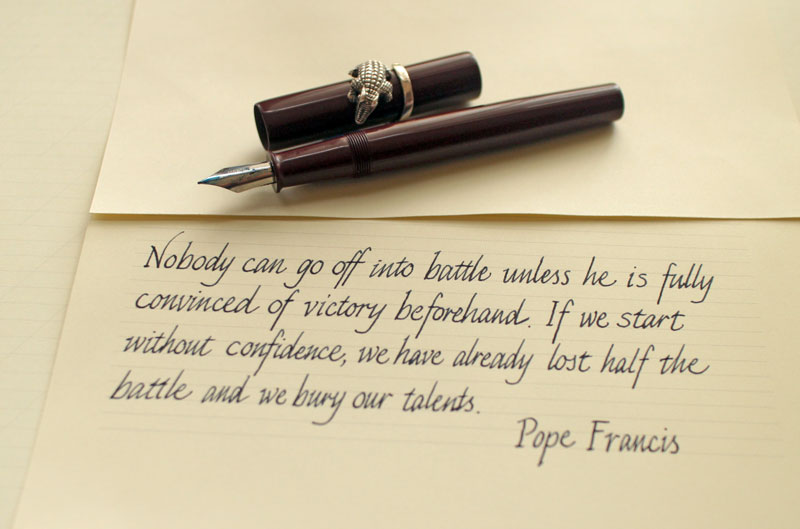 Nobody can go off into battle unless he is fully
convinced of victory beforehand. If we start
without confidence, we have already lost half the
battle and we bury our talents.
Pope Francis